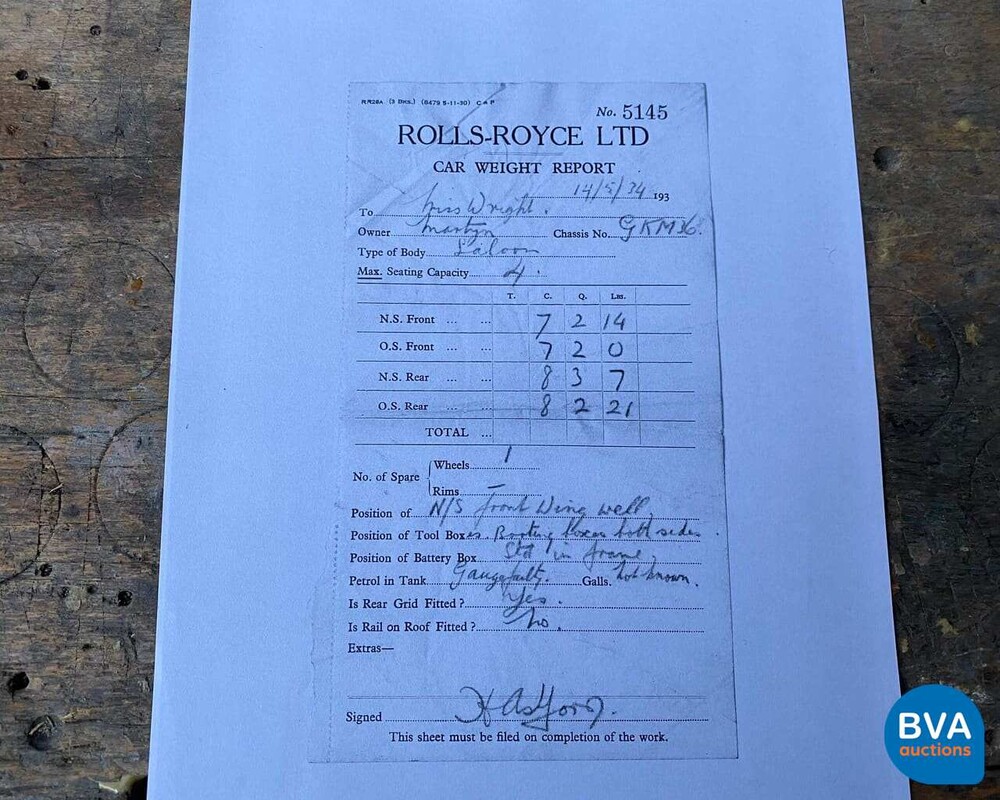 RR28A (3 Bks.) (6479 5-11-30) C & P
No. 5145
ROLLS-ROYCE LTD
CAR WEIGHT REPORT
14/5/34 193
To Miss Wright.
Owner Martyn Chassis No. GKM36.
Type of Body Saloon
Max. Seating Capacity 4.
T. C. Q. Lbs.
N.S. Front ... ... 7 2 14
O.S. Front ... ... 7 2 0
N.S. Rear ... ... 8 3 7
O.S. Rear ... ... 8 2 21
TOTAL ...
No. of Spare
Wheels 1
Rims –
Position of N/S front Wing well,
Position of Tool Boxes. boxes both sides.
Position of Battery Box Std in frame,
Petrol in Tank Gauge faulty. Galls. not known.
Is Rear Grid Fitted? Yes.
Is Rail on Roof Fitted? No.
Extras—
Signed
This sheet must be filed on completion of the work.
BVA
auctions